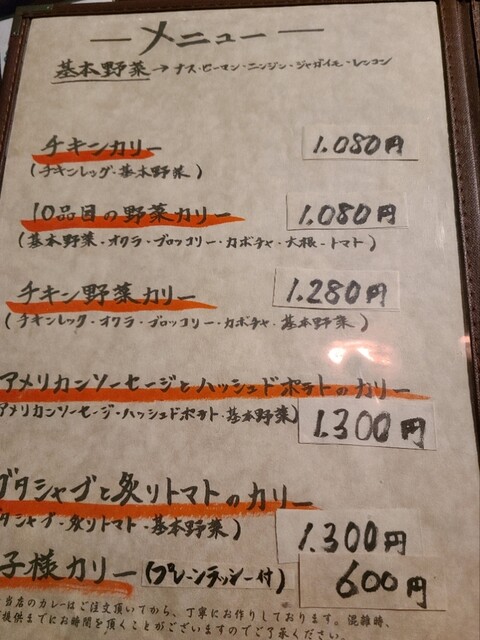 メニュー
基本野菜→ナス・ピーマン・ニンジン・ジャガイモ・レンコン
チキンカリー 1.080円
(チキンレッグ・基本野菜)
10品目の野菜カリー 1.080円
(基本野菜・オクラ・ブロッコリー・カボチャ・大根・トマト)
チキン野菜カリー 1.280円
(チキンレッグ・オクラ・ブロッコリー・カボチャ・基本野菜)
アメリカンソーセージとハッシュドポテトのカリー
アメリカンソーセージ・ハッシュドポテト・基本野菜) 1.300円
ブタシャブと炙りトマトのカリー
タシャブ・炙りトマト・基本野菜) 1.300円
子様カリー(プレーンラッシー付) 600円
当店のカレーはご注文頂いてから、丁寧にお作りしております。混雑時、
提供までにお時間を頂くことがございますのでご了承ください。